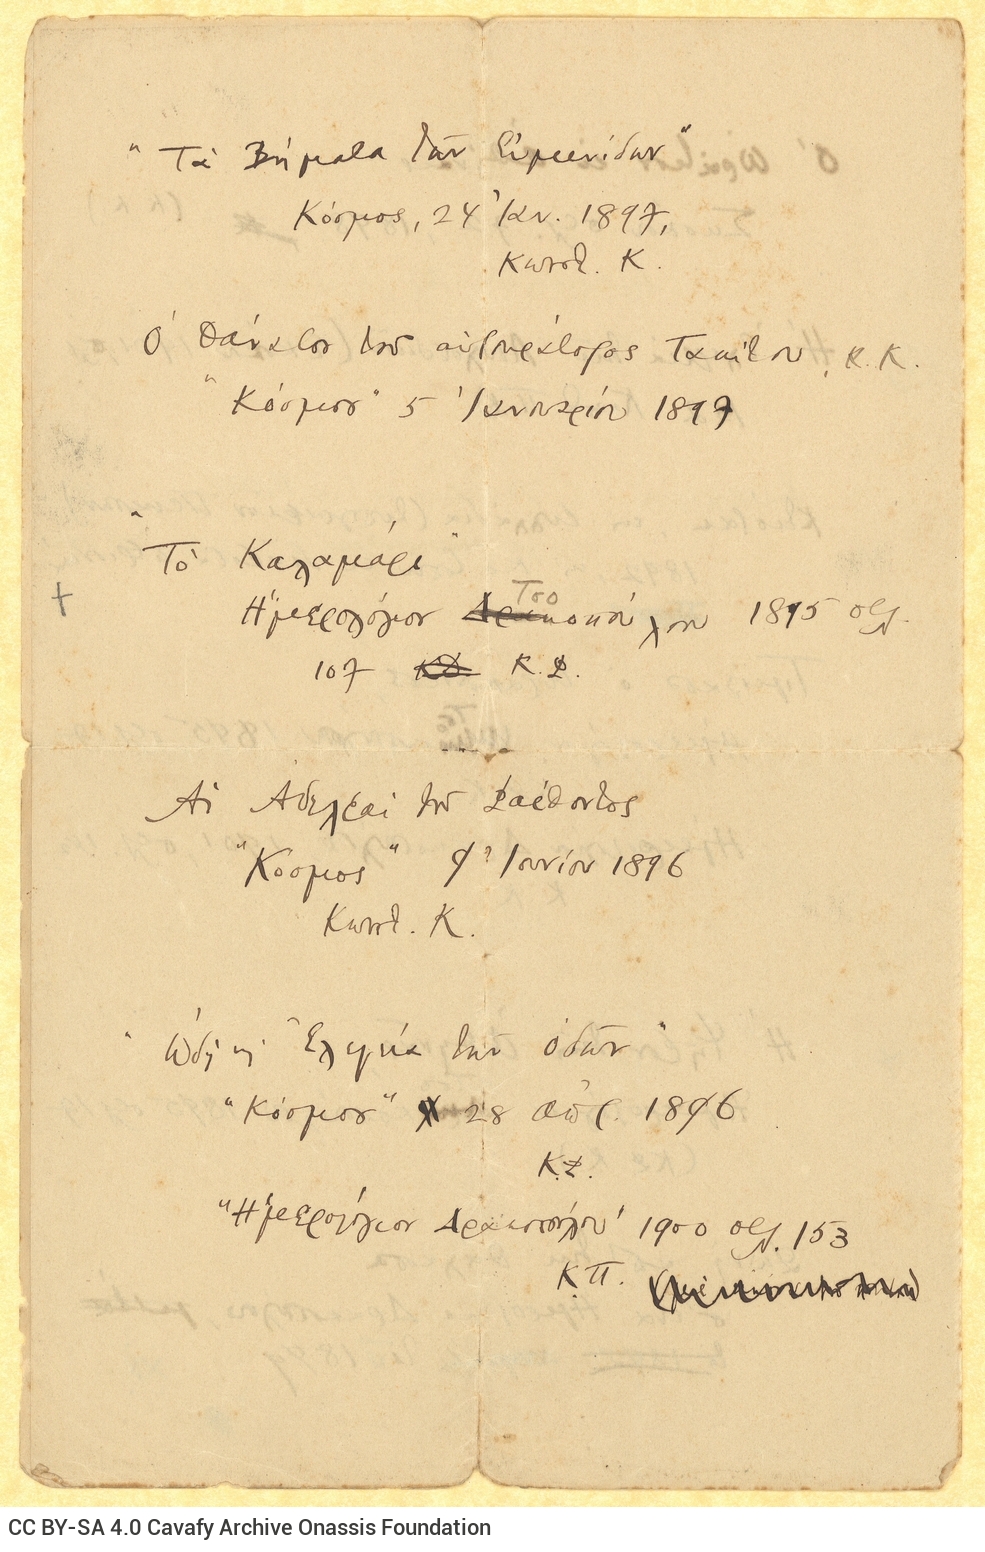 "Τα Βήματα των Ευμενίδων"
Κόσμος, 24 Ἰαν. 1897,
Κωνστ. Κ.
Ὁ Θάνατος του αυτοκράτορος Τακίτου, Κ. Κ.
"Κόσμος" 5 Ἰανουαρίου 1897
"Τὸ Καλαμάρι"
+ Ἡμερολόγιον Τσοκοπούλου 1895 σελ.
107 Κ. Φ.
Αἱ Ἀδελφαὶ τοῦ Φαέθοντος
"Κόσμος" 9 Ἰουνίου 1896
Κωνστ. Κ.
"Ὠδὴ κ Ἐλεγεία των ὁδῶν"
"Κόσμος" 28 Ἀπρ. 1896
Κ.Φ.
"Ἡμερολόγιον Δρακοπούλου" 1900 σελ. 153
Κ.Π.
CC BY-SA 4.0 Cavafy Archive Onassis Foundation